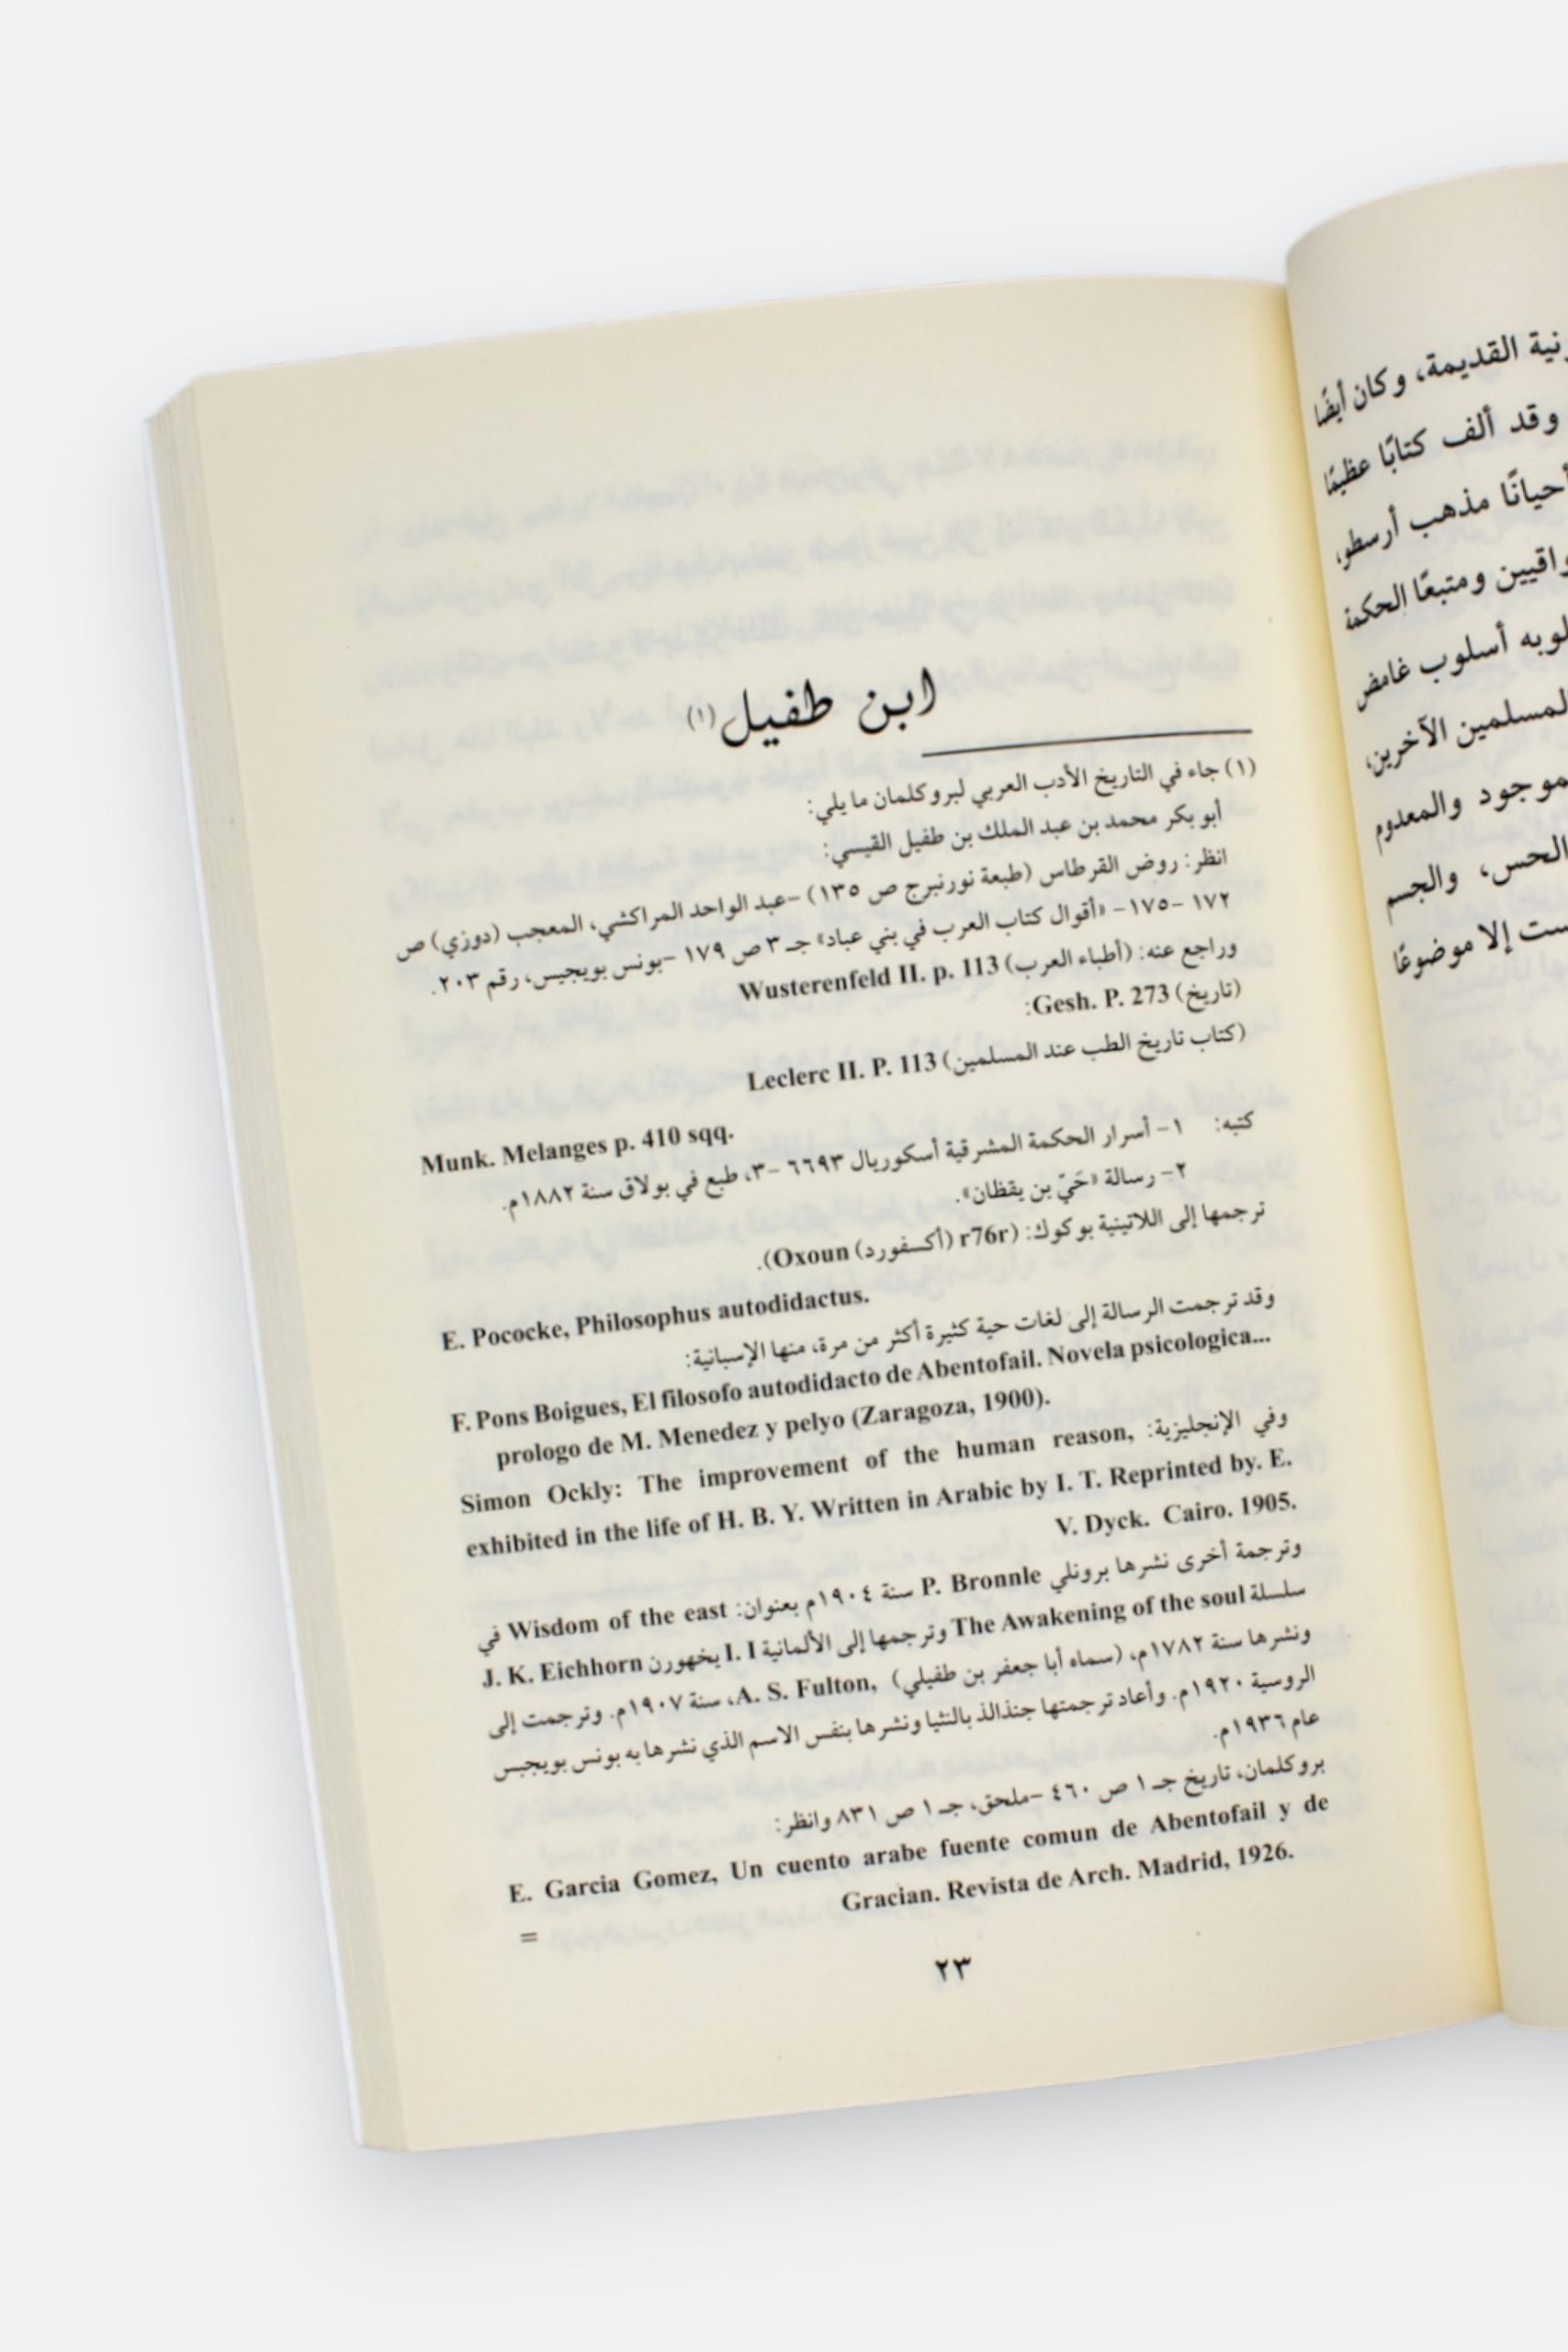 ابن طفيل(١)
(١) جاء في التاريخ الأدب العربي لبروكلمان ما يلي:
أبو بكر محمد بن عبد الملك بن طفيل القيسي:
انظر: روض القرطاس (طبعة نورنبرج ص ١٣٥) –عبد الواحد المراكشي، المعجب (دوزي) ص
١٧٢ –١٧٥– «أقوال كتاب العرب في بني عباد» جـ ٣ ص ١٧٩ –بونس بويجيس، رقم ٢٠٣.
وراجع عنه: (أطباء العرب) Wusterenfeld II. p. 113
(تاريخ) Gesh. P. 273:
(كتاب تاريخ الطب عند المسلمين) Leclerc II. P. 113
Munk. Melanges p. 410 sqq.
كتبه: ١– أسرار الحكمة المشرقية أسكوريال ٦٦٩٣ –٣، طبع في بولاق سنة ١٨٨٢م.
٢– رسالة «حَيّ بن يقظان».
ترجمها إلى اللاتينية بوكوك: (r76r (أكسفورد) Oxoun).
E. Pococke, Philosophus autodidactus.
وقد ترجمت الرسالة إلى لغات حية كثيرة أكثر من مرة، منها الإسبانية:
F. Pons Boigues, El filosofo autodidacto de Abentofail. Novela psicologica...
prologo de M. Menedez y pelyo (Zaragoza, 1900).
وفي الإنجليزية: Simon Ockly: The improvement of the human reason,
exhibited in the life of H. B. Y. Written in Arabic by I. T. Reprinted by. E.
V. Dyck. Cairo. 1905.
وترجمة أخرى نشرها برونلي P. Bronnle سنة ١٩٠٤م بعنوان: Wisdom of the east في
سلسلة The Awakening of the soul وترجمها إلى الألمانية I. I يخهورن J. K. Eichhorn
ونشرها سنة ١٧٨٢م، (سماه أبا جعفر بن طفيلي) A. S. Fulton,، سنة ١٩٠٧م. وترجمت إلى
الروسية ١٩٢٠م. وأعاد ترجمتها جنذالذ بالنثيا ونشرها بنفس الاسم الذي نشرها به بونس بويجيس
عام ١٩٣٦م.
بروكلمان، تاريخ جـ ١ ص ٤٦٠ –ملحق، جـ ١ ص ٨٣١ وانظر:
E. Garcia Gomez, Un cuento arabe fuente comun de Abentofail y de
Gracian. Revista de Arch. Madrid, 1926.
=
٢٣
القديمة، وكان أيضًا
وقد ألف كتابًا عظيمًا
أحيانًا مذهب أرسطو،
ومتبعًا الحكمة
أسلوب غامض
المسلمين الآخرين،
والمعدوم
الحس، والجسم
إلا موضوعًا